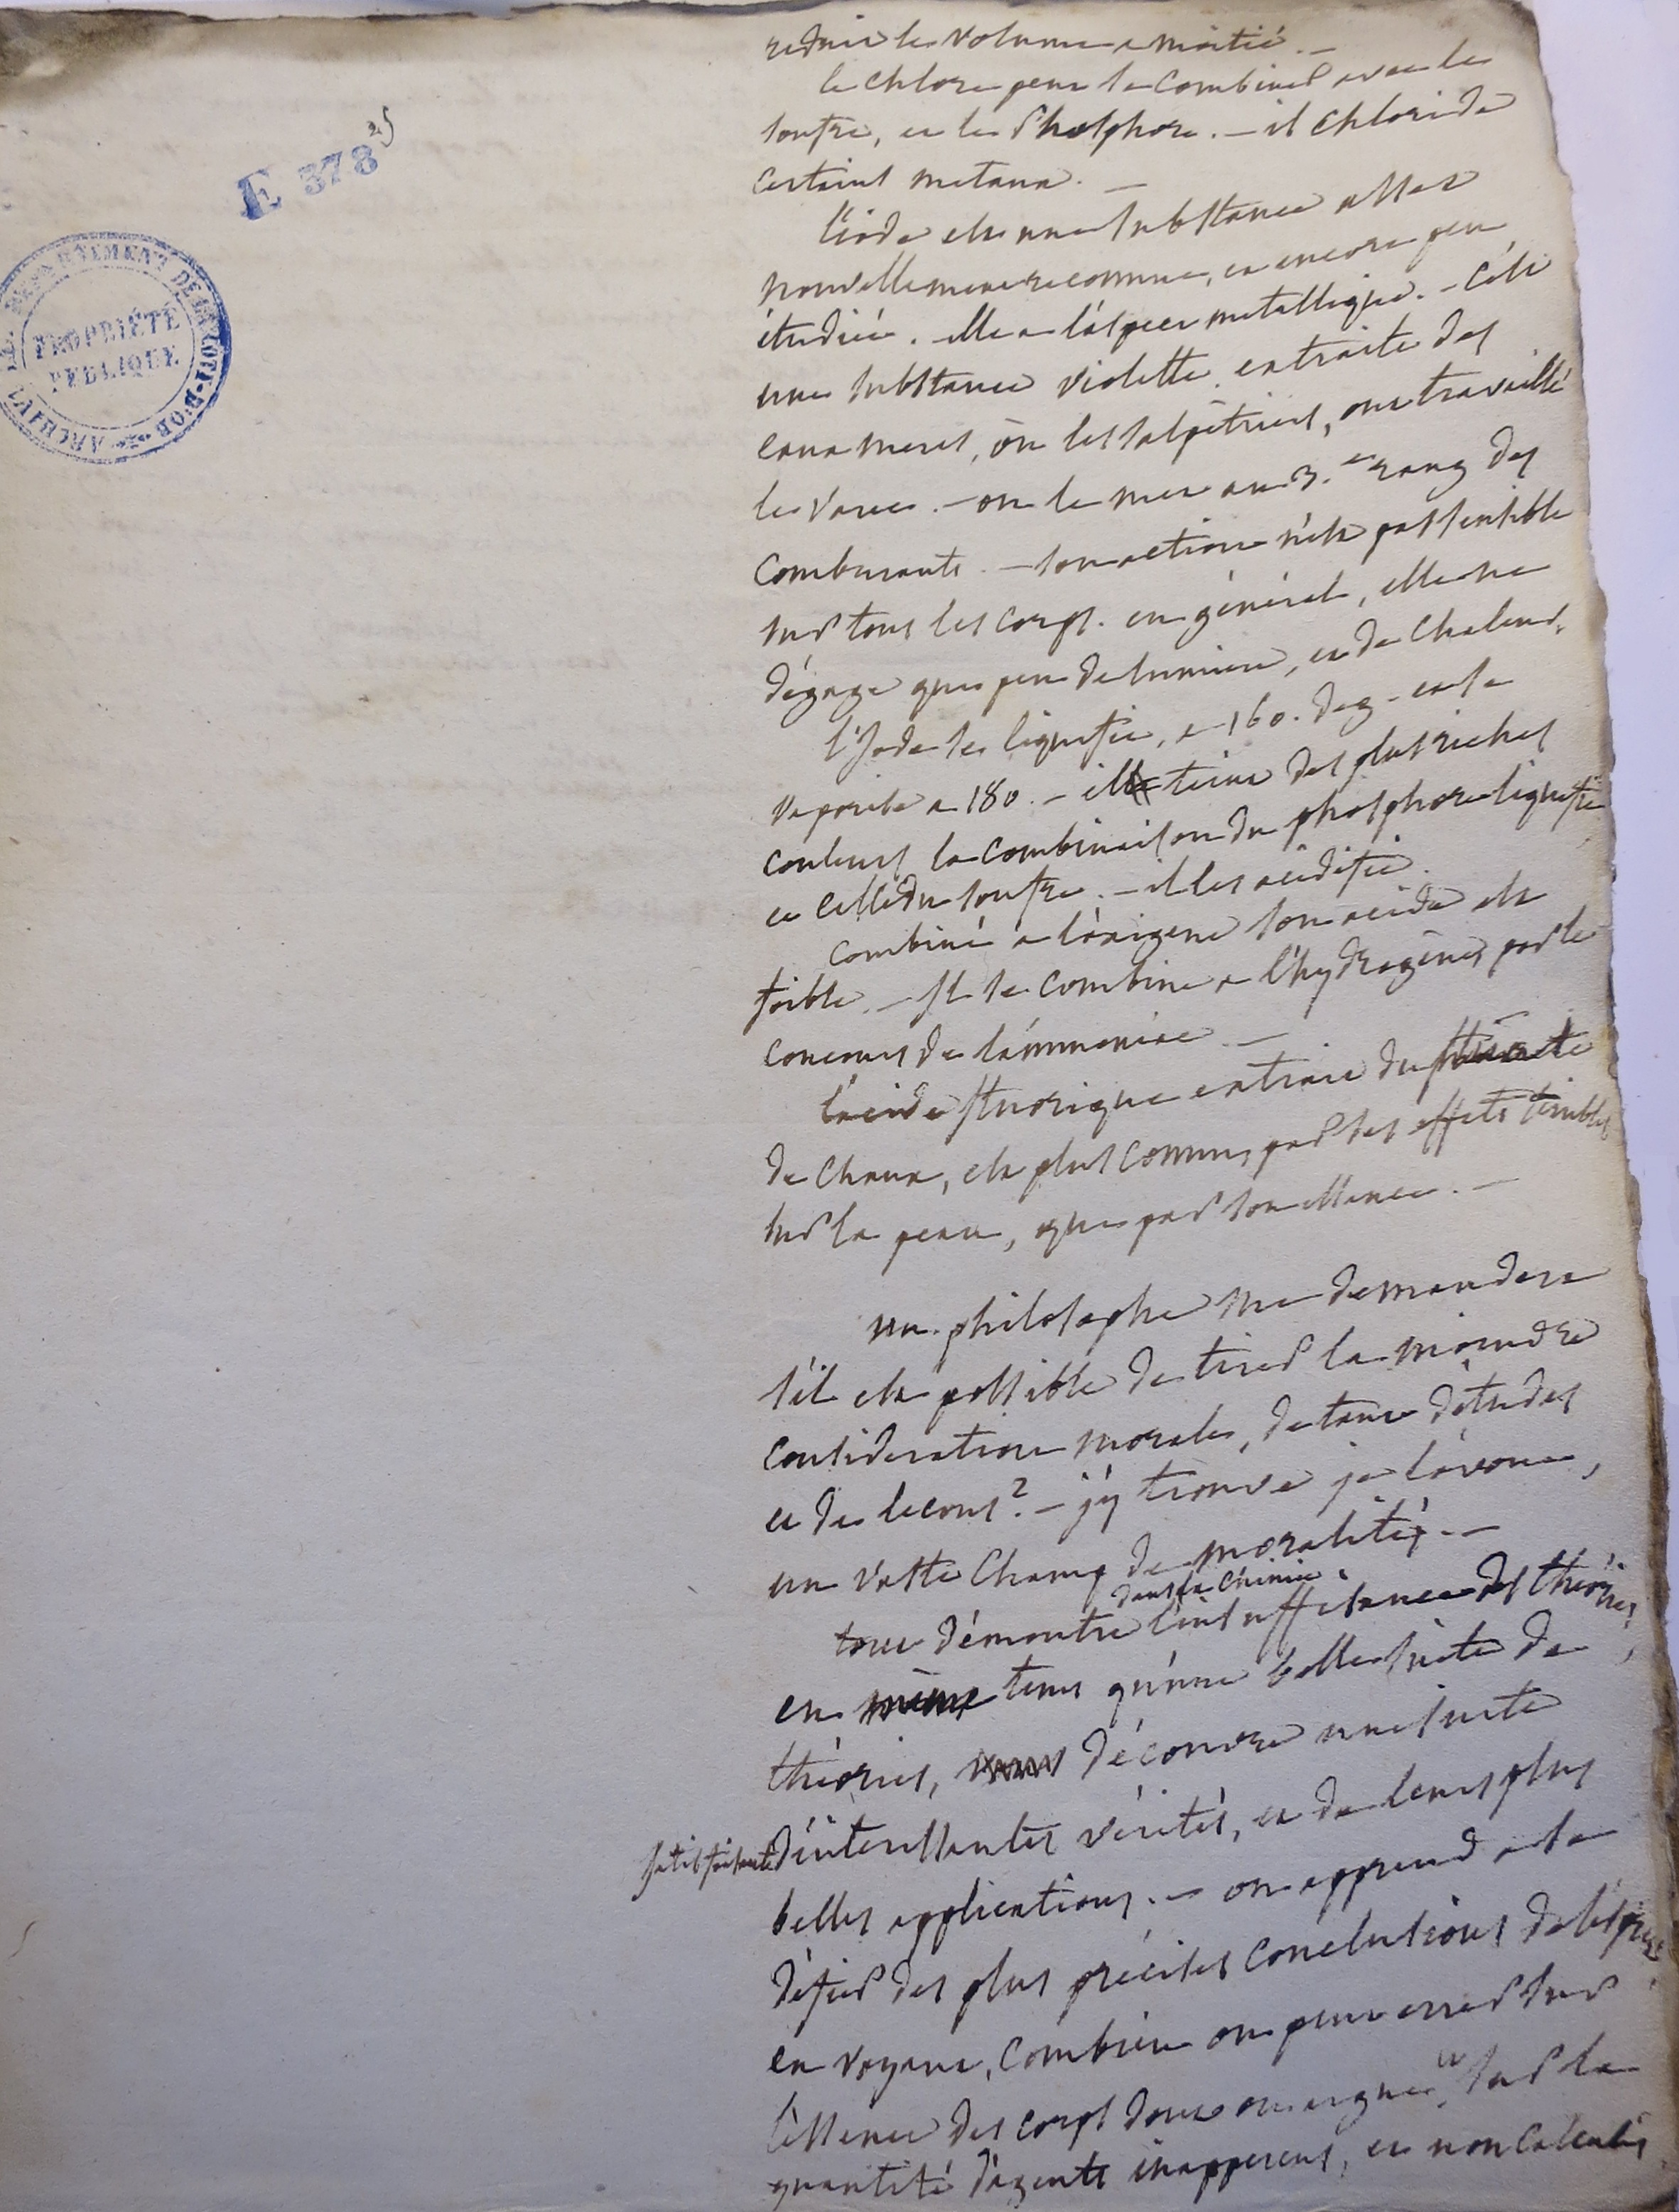 E 378 25
ARCHIVES DU DÉPARTEMENT DE LA CÔTE-D'OR
PROPRIÉTÉ
PUBLIQUE
reduire les volumes a moitié. —
le chlore peut se combiner avec le
soufre, et le Phosphore. — il chloride
certains metaux. —
l'iode est une substance assez
nouvellement reconnue, et encore peu
étudiée. elle a l'aspect metallique. — C'est
une substance violette extraite des
eaux meres, où les salpêtriers, ont travaillé
les Varecs. — on le met au 3.e rang des
comburants. — son action n'est pas sensible
sur tous les corps. en général, elle ne
dégage que peu de lumiere, et de chaleur.
l'Iode se liquefie, a 160. deg. et se
vaporise a 180. — il teint des plus riches
couleurs la combinaison du phosphore liquefié
et celle du soufre. — il les acidifie.
combiné a l'oxigene son acide est
foible. — Il se combine a l'hydrogène, par le
concours de l'ammoniac. —
l'acide fluorique extrait du fluate
de chaux, est plus connu, par ses effets terribles
sur la peau, que par son essence. —
un philosophe me demandera
s'il est possible de tirer la moindre
consideration morale, de tant d'études
et de lecons? — j'y trouve je l'avoue,
un vaste champ de moralités. —
dans la chimie
tout démontre l'insuffisance des théories,
en même tems qu'une belle suite de
théories, découvre une suite
satisfaisante d'interessantes vérités, et de leurs plus
belles applications. — on apprend a se
défier des plus précises conclusions de l'esprit
en voyant, combien on peut errer sur
l'essence des corps dont on argue, et sur la
quantité d'agents inapperçus, et non calculés